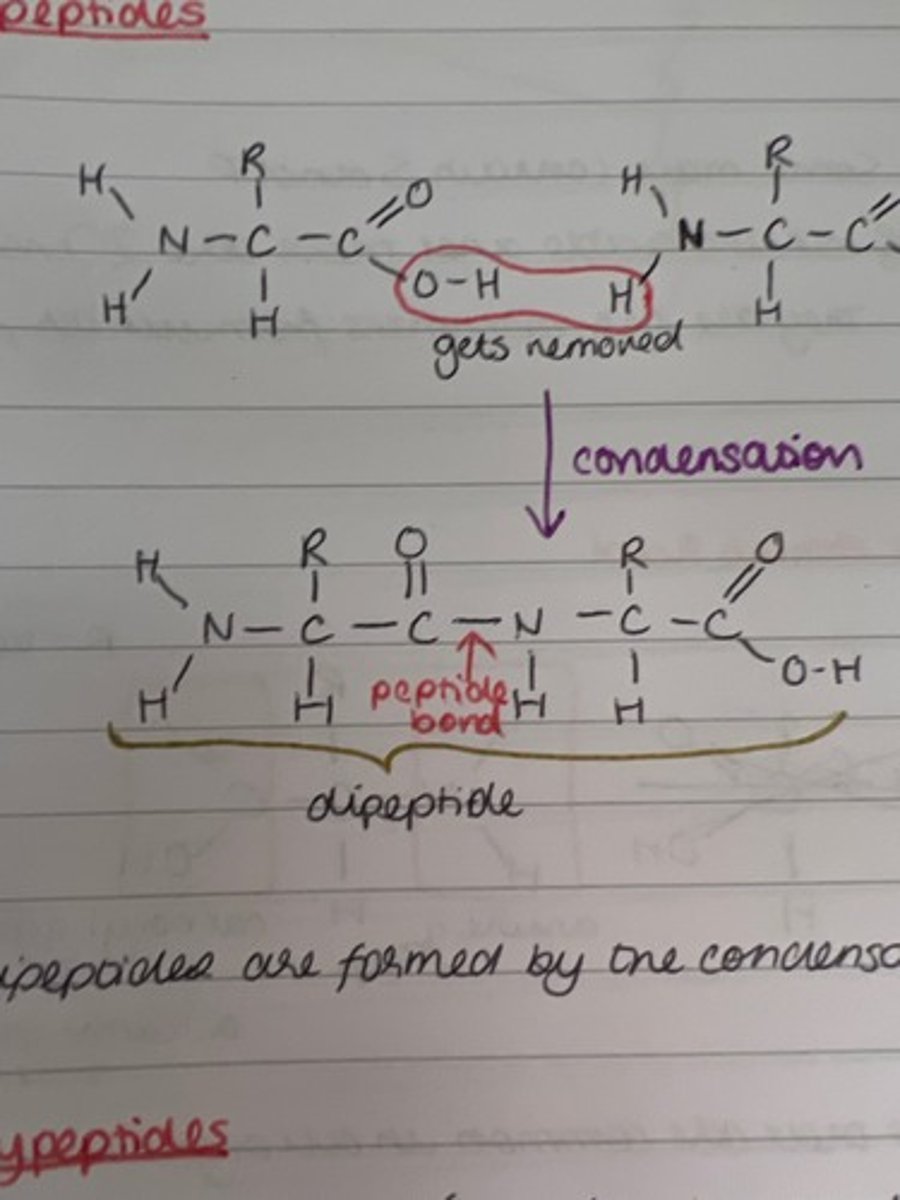 peptides
H R O H R
N - C - C N - C - C
O - H H
H H H
gets removed
condensation
H R O R O
N - C - C - N - C - C
O - H
H H peptide H H
bond
dipeptide
ipeptides are formed by the condensa
ypeptides